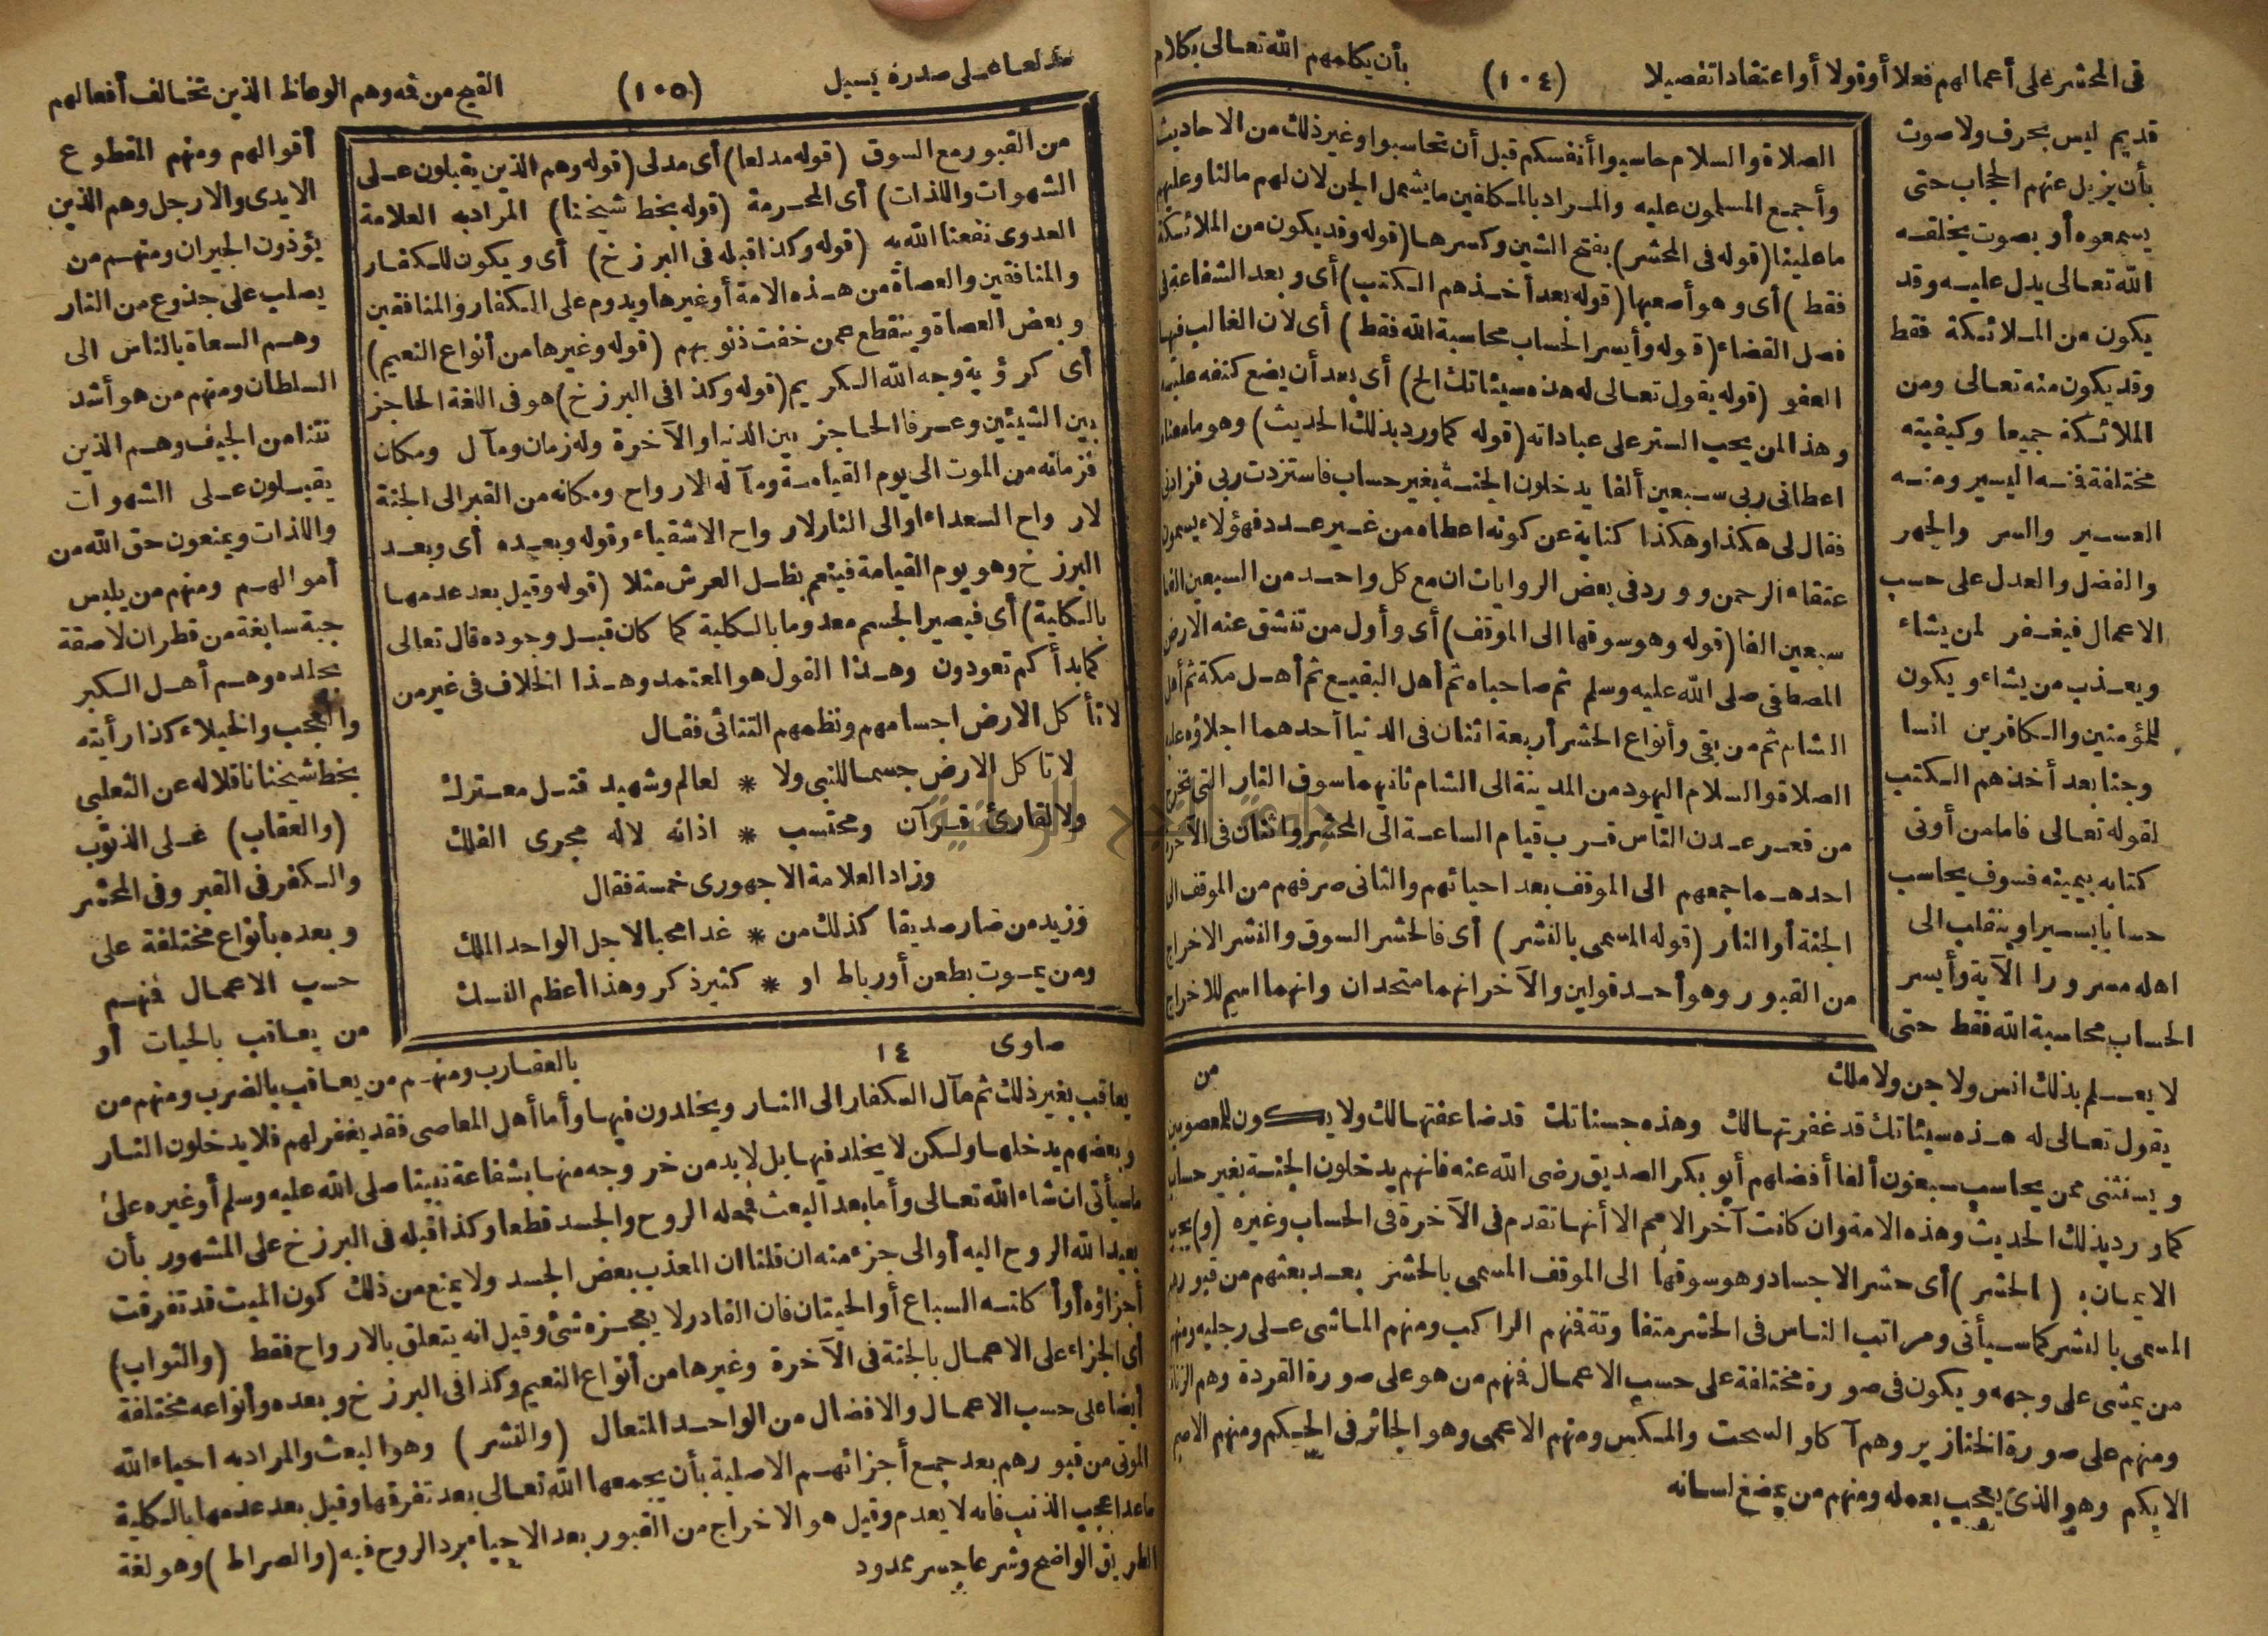 فى المحشر على أعمالهم فعلا أو قولا أو اعتقادا تفصيلا
(١٠٤)
بأن يكلمهم الله تعالى بكلام
قديم ليس بحرف ولا صوت
بأن يزيل عنهم الحجاب حتى
يسمعوه أو بصوت يخلقه
الله تعالى يدل عليه وقد
يكون من الملائكة فقط
وقد يكون منه تعالى ومن
الملائكة جميعا وكيفيته
مختلفة فنه اليسير ومنه
العسير والسر والجهر
والفضل والعدل على حسب
الاعمال فيغفر لمن يشاء
ويعذب من يشاء ويكون
للمؤمنين والكافرين انسا
وجنا بعد أخذهم الكتب
لقوله تعالى فاما من أوتى
كتابه بيمينه فسوف يحاسب
حسابا يسيرا وينقلب الى
اهله مسرورا الآية وأيسر
الحساب محاسبة الله فقط حتى
لا يعلم بذلك انس ولا جن ولا ملك
يقول تعالى له هذه سيئاتك قد غفرتها لك وهذه حسناتك قد ضاعفتها لك ولا يكون للمعصومين
ويستثنى ممن يحاسب سبعون ألفا أفضلهم أبو بكر الصديق رضى الله عنه فانهم يدخلون الجنة بغير حساب
كما ورد بذلك الحديث وهذه الامة وان كانت آخر الامم الا أنها تقدم فى الآخرة فى الحساب وغيره (و) يجب
الايمان ب (الحشر) أى حشر الاجساد وهو سوقها الى الموقف المسمى بالحشر بعد بعثهم من قبورهم
المسمى بالنشر كما سيأتى ومراتب الناس فى الحشر متفاوتة فنهم الراكب ومنهم الماشى على رجليه ومنهم
من يمشى على وجهه ويكون فى صورة مختلفة على حسب الاعمال فنهم من هو على صورة القردة وهم الزناة
ومنهم على صورة الخنازير وهم آكلو السحت والمكس ومنهم الاعمى وهو الجائر فى الحكم ومنهم الاصم
الابكم وهو الذى يعجب بعمله ومنهم من يمضغ لسانه
الصلاة والسلام حاسبوا أنفسكم قبل أن تحاسبوا وغير ذلك من الاحاديث
وأجمع المسلمون عليه والمراد بالمكلفين ما يشمل الجن لان لهم مالنا وعليهم
ما علينا (قوله فى المحشر) بفتح الشين وكسرها (قوله وقد يكون من الملائكة
فقط) أى وهو أصعبها (قوله بعد أخذهم الكتب) أى وبعد الشفاعة فى
فصل القضاء (قوله وأيسر الحساب محاسبة الله فقط) أى لان الغالب فيها
العفو (قوله يقول تعالى له هذه سيئاتك الخ) أى بعد أن يضع كنفه عليه
وهذا لمن يحب الستر على عباداته (قوله كما ورد بذلك الحديث) وهو ما معناه
اعطانى ربى سبعين ألفا يدخلون الجنة بغير حساب فاستزدت ربى فزادنى
فقال لى هكذا وهكذا كناية عن كونه اعطاه من غير عدد فهؤلاء يسمون
عتقاء الرحمن وورد فى بعض الروايات ان مع كل واحد من السبعين الفا
سبعين الفا (قوله وهو سوقها الى الموقف) أى وأول من تنشق عنه الارض
المصطفى صلى الله عليه وسلم ثم صاحباه ثم أهل البقيع ثم أهل مكة ثم أهل
الشام ثم من بقى وأنواع الحشر أربعة اثنان فى الدنيا أحدهما اجلاؤه عليه
الصلاة والسلام اليهود من المدينة الى الشام ثانيهما سوق النار التى تخرج
من قعر عدن الناس قرب قيام الساعة الى المحشر واثنان فى الآخرة
احدهما جمعهم الى الموقف بعد احيائهم والثانى صرفهم من الموقف الى
الجنة أو النار (قوله المسمى بالنشر) أى فالحشر السوق والنشر الاخراج
من القبور وهو أحد قولين والآخر انهما متحدان وانهما اسم للاخراج
من
مدلعا على صدره يسيل
(١٠٥)
القيح من فمه وهم الوعاظ الذين تخالف أفعالهم
من القبور مع السوق (قوله مدلعا) أى مدلى (قوله وهم الذين يقبلون على
الشهوات واللذات) أى المحرمة (قوله بخط شيخنا) المراد به العلامة
العدوى نفعنا الله به (قوله وكذا قبله فى البرزخ) أى ويكون للكفار
والمنافقين والعصاة من هذه الامة أو غيرها ويدوم على الكفار والمنافقين
وبعض العصاة وينقطع عمن خفت ذنوبهم (قوله وغيرها من أنواع النعيم)
أى كرؤية وجه الله الكريم (قوله وكذا فى البرزخ) هو فى اللغة الحاجز
بين الشيئين وعرفا الحاجز بين الدنيا والآخرة وله زمان ومآل ومكان
فزمانه من الموت الى يوم القيامة ومآله الارواح ومكانه من القبر الى الجنة
لارواح السعداء او الى النار لارواح الاشقياء وقوله وبعده أى وبعد
البرزخ وهو يوم القيامة فيتنعم بظل العرش مثلا (قوله وقيل بعد عدمها
بالكلية) أى فيصير الجسم معدوما بالكلية كما كان قبل وجوده قال تعالى
كما بدأكم تعودون وهذا القول هو المعتمد وهذا الخلاف فى غير من
لا تأكل الارض اجسامهم ونظمهم التتائى فقال
لا تاكل الارض جسما للنبى ولا * لعالم وشهيد قتل معترك
ولا لقارئ قرآن ومحتسب * اذانه لاله مجرى الفلك
وزاد العلامة الاجهورى خمسة فقال
وزيد من صار صديقا كذلك من * غدا محبا لاجل الواحد الملك
ومن يموت بطعن أو رباط او * كثير ذكر وهذا أعظم النسك
صاوى
١٤
أقوالهم ومنهم المقطوع
الايدى والارجل وهم الذين
يؤذون الجيران ومنهم من
يصلب على جذوع من النار
وهم السعاة بالناس الى
السلطان ومنهم من هو أشد
نتنا من الجيف وهم الذين
يقبلون على الشهوات
واللذات ويمنعون حق الله من
أموالهم ومنهم من يلبس
جبة سابغة من قطران لاصقة
بجلده وهم أهل الكبر
والعجب والخيلاء كذا رأيته
بخط شيخنا ناقلا له عن الثعلبى
(والعقاب) على الذنوب
والكفر فى القبر وفى المحشر
وبعده بأنواع مختلفة على
حسب الاعمال فنهم
من يعاقب بالحيات أو
بالعقارب ومنهم من يعاقب بالضرب ومنهم من
يعاقب بغير ذلك ثم مآل الكفار الى النار ويخلدون فيها وأما أهل المعاصى فقد يغفر لهم فلا يدخلون النار
وبعضهم يدخلها ولكن لا يخلد فيها بل لا بد من خروجه منها بشفاعة نبينا صلى الله عليه وسلم أو غيره على
ما سيأتى ان شاء الله تعالى وأما بعد البعث فمحله الروح والجسد قطعا وكذا قبله فى البرزخ على المشهور بأن
يعيد الله الروح اليه أو الى جزء منه ان قلنا ان المعذب بعض الجسد ولا يمنع من ذلك كون الميت قد تفرقت
أجزاؤه أو أكلته السباع أو الحيتان فان القادر لا يعجزه شئ وقيل انه يتعلق بالارواح فقط (والثواب)
أى الجزاء على الاعمال بالجنة فى الآخرة وغيرها من أنواع النعيم وكذا فى البرزخ وبعده وأنواعه مختلفة
أيضا على حسب الاعمال والافضال من الواحد المتعال (والنشر) وهو البعث والمراد به احياء الله
الموتى من قبورهم بعد جمع أجزائهم الاصلية بأن يجمعها الله تعالى بعد تفرقها وقيل بعد عدمها بالكلية
ما عدا عجب الذنب فانه لا يعدم وقيل هو الاخراج من القبور بعد الاحياء برد الروح فيه (والصراط) وهو لغة
الطريق الواضح وشرعا جسر ممدود